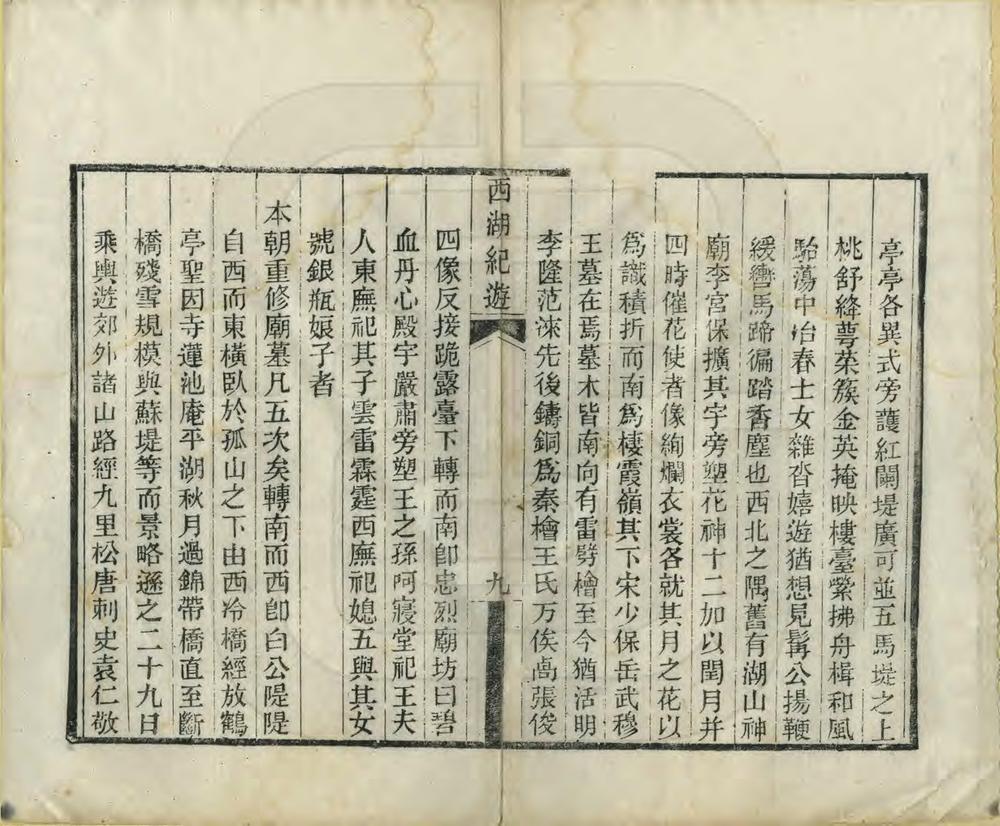 亭亭各異式旁護紅闌堤廣可並五馬堤之上
桃舒絳萼桒簇金英掩映樓臺縈拂舟楫和風
駘蕩中冶春士女雜沓嬉遊猶想見髯公揚鞭
緩轡馬蹄徧踏香塵也西北之隅舊有湖山神
廟李宮保擴其宇旁塑花神十二加以閏月并
四時催花使者像絢爛衣裳各就其月之花以
爲識積折而南爲棲霞嶺其下宋少保岳武穆
王墓在焉墓木皆南向有雷劈檜至今猶活明
李隆范淶先後鑄銅爲秦檜王氏万俟卨張俊
西湖紀遊
九
四像反接跪露臺下轉而南卽忠烈廟坊曰碧
血丹心殿宇嚴肅旁塑王之孫珂寢堂祀王夫
人東廡祀其子雲雷霖霆西廡祀媳五與其女
號銀瓶娘子者
本朝重修廟墓凡五次矣轉南而西卽白公隄隄
自西而東橫臥於孤山之下由西泠橋經放鶴
亭聖因寺蓮池庵平湖秋月過錦帶橋直至斷
橋殘雪規模與蘇堤等而景略遜之二十九日
乘輿遊郊外諸山路經九里松唐刺史袁仁敬